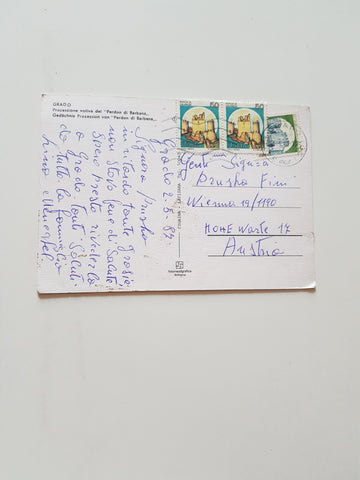 GRADO
Processione votiva del "Perdon di Barbana"
Gedächtnis Prozession von "Perdon di Barbana"
Grado 2.5.89
Signora Pruska
in Grado tante Grasie,
non stavo bene di salute
Spero presto rivederla
a Grado, tanti saluti
da tutta la famiglia
50
50
Gent. ma Signora
Pruska Fini
Wienna 19/1190
HOHE Warte 17
Austria
fotometalgrafica
bologna